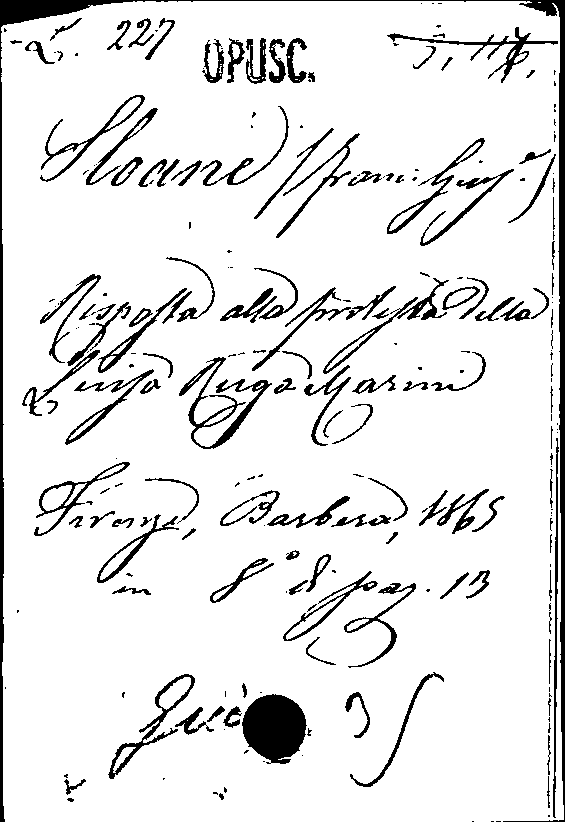 L. 227
OPUSC.
Sloane (Franc. Gius.e)
Risposta alla protesta della
Luisa Ruga Marini
Firenze, Barbera, 1865
in 8° di pag. 13